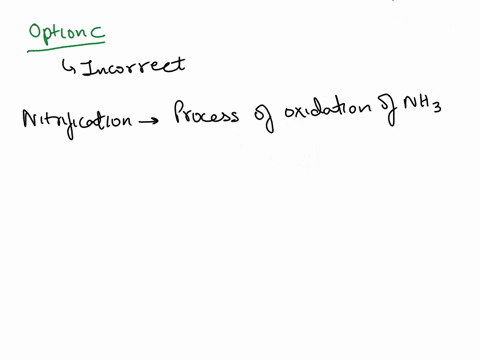 Option C
↳ Incorrect
Nitrification → Process of oxidation of NH3